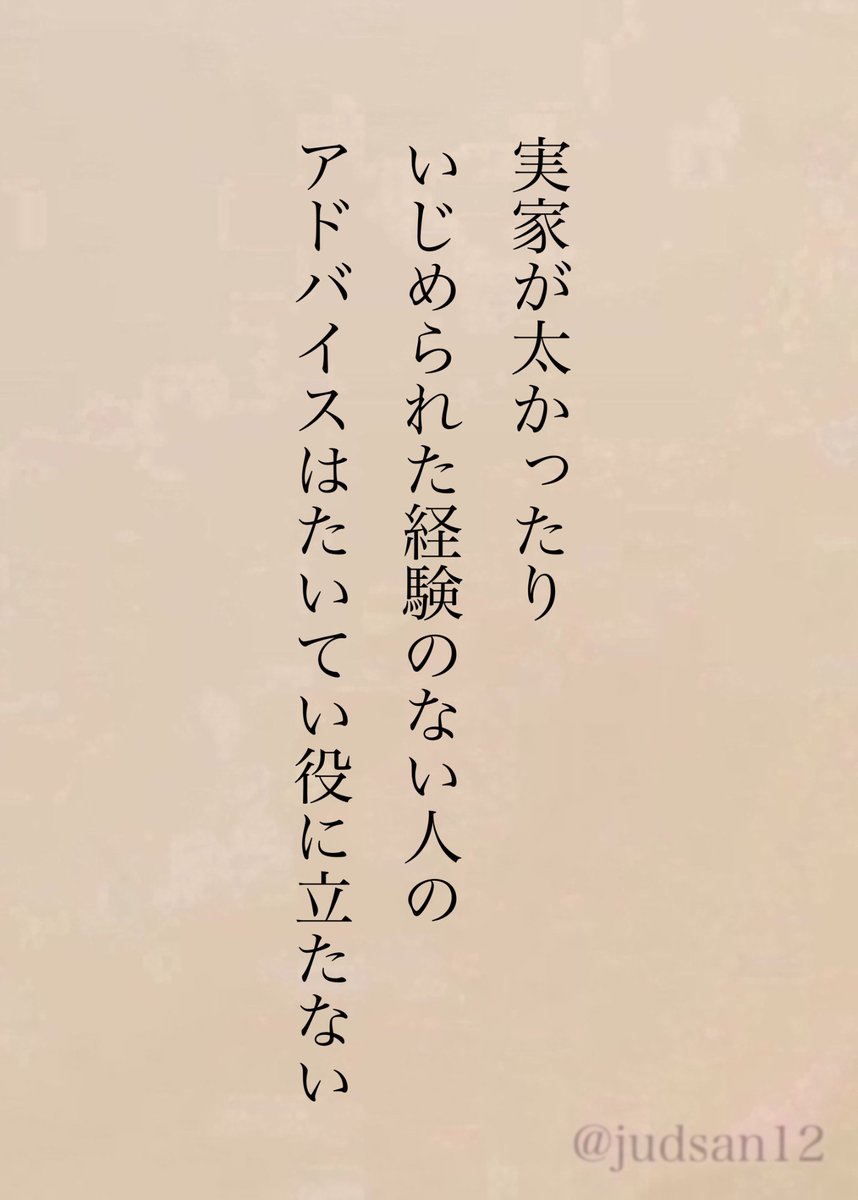 実家が太かったり
いじめられた経験のない人の
アドバイスはたいてい役に立たない
@judsan12